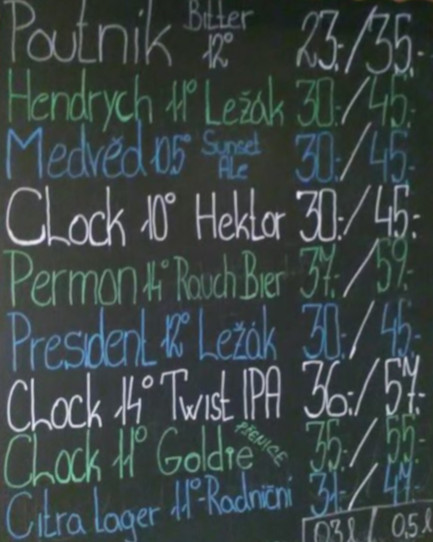 Poutník Bitter 12° 23.-/35.-
Hendrych 11° Ležák 30.-/45.-
Medvěd 10.5° Sunset Ale 30.-/45.-
Clock 10° Hektor 30.-/45.-
Permon 14° Rauch Bier 37.-/59.-
President 12° Ležák 30.-/45.-
Clock 14° Twist IPA 36.-/57.-
Clock 11° Goldie PŠENICE 35.-/55.-
Citra Lager 11°-Radniční 31.-/47.-
0,3l / 0,5l